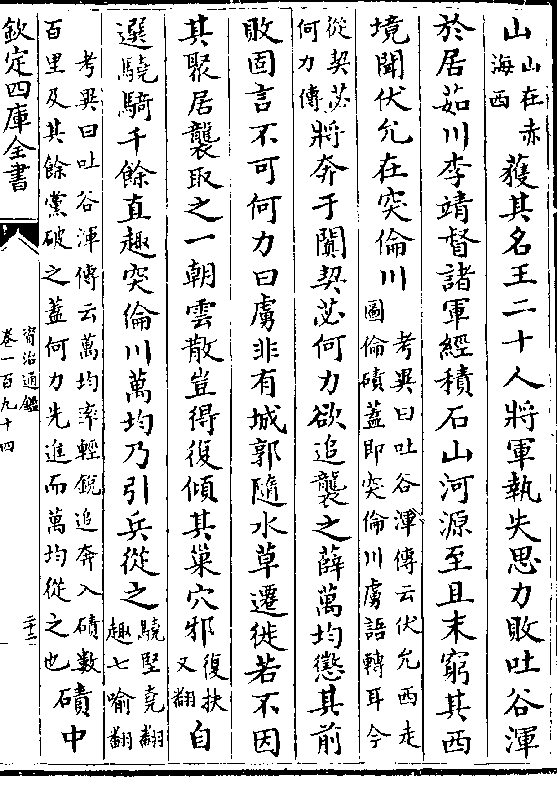 山山在赤海西獲其名王二十人將軍執失思力敗吐谷渾
於居茹川李靖督諸軍經積石山河源至且末窮其西
境聞伏允在突倫川考異曰吐谷渾傳云伏允西走圖倫磧葢即突倫川虜語轉耳今
從契苾何力傳將奔于闐契苾何力欲追襲之薛萬均懲其前
敗固言不可何力曰虜非有城郭隨水草遷徙若不因
其聚居襲取之一朝雲散豈得復傾其巢穴邪復扶又翻自
選驍騎千餘直趣突倫川萬均乃引兵從之驍堅堯翻趣七喻翻
考異曰吐谷渾傳云萬均率輕銳追奔入磧數百里及其餘黨破之葢何力先進而萬均從之也磧中
欽定四庫全書
資治通鑑
卷一百九十四
二十二